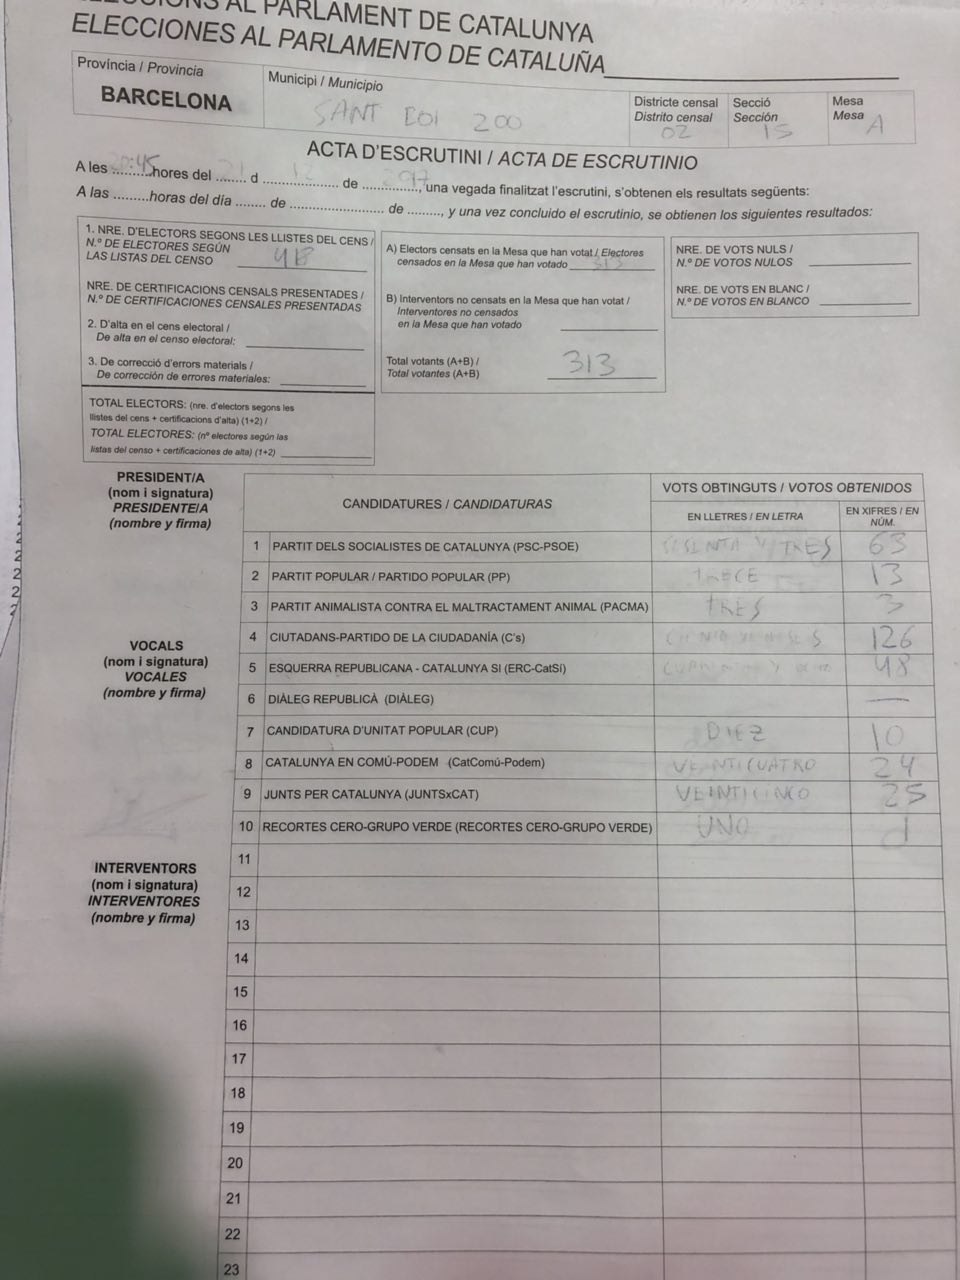 ELECCIONS AL PARLAMENT DE CATALUNYA
ELECCIONES AL PARLAMENTO DE CATALUÑA
Província / Provincia
BARCELONA
Municipi / Municipio
SANT BOI 200
Districte censal
Distrito censal
02
Secció
Sección
15
Mesa
Mesa
A
ACTA D'ESCRUTINI / ACTA DE ESCRUTINIO
A les 20:45 hores del 21 d 12 de ............, una vegada finalitzat l'escrutini, s'obtenen els resultats següents:
A las .........horas del día ........ de ........................ de ........, y una vez concluido el escrutinio, se obtienen los siguientes resultados:
1. NRE. D'ELECTORS SEGONS LES LLISTES DEL CENS /
N.º DE ELECTORES SEGÚN
LAS LISTAS DEL CENSO 418
NRE. DE CERTIFICACIONS CENSALS PRESENTADES /
N.º DE CERTIFICACIONES CENSALES PRESENTADAS
2. D'alta en el cens electoral /
De alta en el censo electoral:
3. De correcció d'errors materials /
De corrección de errores materiales:
TOTAL ELECTORS: (nre. d'electors segons les
llistes del cens + certificacions d'alta) (1+2) /
TOTAL ELECTORES: (nº electores según las
listas del censo + certificaciones de alta) (1+2)
A) Electors censats en la Mesa que han votat / Electores
censados en la Mesa que han votado 313
B) Interventors no censats en la Mesa que han votat /
Interventores no censados
en la Mesa que han votado
Total votants (A+B) /
Total votantes (A+B) 313
NRE. DE VOTS NULS /
N.º DE VOTOS NULOS
NRE. DE VOTS EN BLANC /
N.º DE VOTOS EN BLANCO
PRESIDENT/A
(nom i signatura)
PRESIDENTE/A
(nombre y firma)
VOCALS
(nom i signatura)
VOCALES
(nombre y firma)
INTERVENTORS
(nom i signatura)
INTERVENTORES
(nombre y firma)
CANDIDATURES / CANDIDATURAS
VOTS OBTINGUTS / VOTOS OBTENIDOS
EN LLETRES / EN LETRA
EN XIFRES / EN NÚM.
1 PARTIT DELS SOCIALISTES DE CATALUNYA (PSC-PSOE) SESENTA Y TRES 63
2 PARTIT POPULAR / PARTIDO POPULAR (PP) TRECE 13
3 PARTIT ANIMALISTA CONTRA EL MALTRACTAMENT ANIMAL (PACMA) TRES 3
4 CIUTADANS-PARTIDO DE LA CIUDADANÍA (C's) 126
5 ESQUERRA REPUBLICANA - CATALUNYA SI (ERC-CatSí) 48
6 DIÀLEG REPUBLICÀ (DIÀLEG) —
7 CANDIDATURA D'UNITAT POPULAR (CUP) DIEZ 10
8 CATALUNYA EN COMÚ-PODEM (CatComú-Podem) VEINTICUATRO 24
9 JUNTS PER CATALUNYA (JUNTSxCAT) VEINTICINCO 25
10 RECORTES CERO-GRUPO VERDE (RECORTES CERO-GRUPO VERDE) UNO 1
11
12
13
14
15
16
17
18
19
20
21
22
23